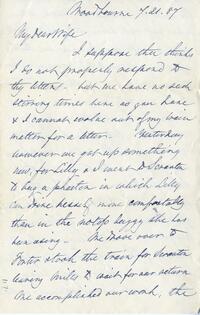 Woodbourne 7.21.87
My Dear Wife
I suppose thee thinks
I do not properly respond to
thy letters - but we have no such
stirring times here as you have
& I cannot evolve out of my brain
matter for a letter. Yesterday
however we got up something
new, for Lilly & I went to Scranton
to buy a phaeton in which Lilly
can drive herself more comfortably
than in the notops buggy she has
been using - We drove over to
Foster & took the train for Scranton
leaving mules to wait for our return
We accomplished our work, the